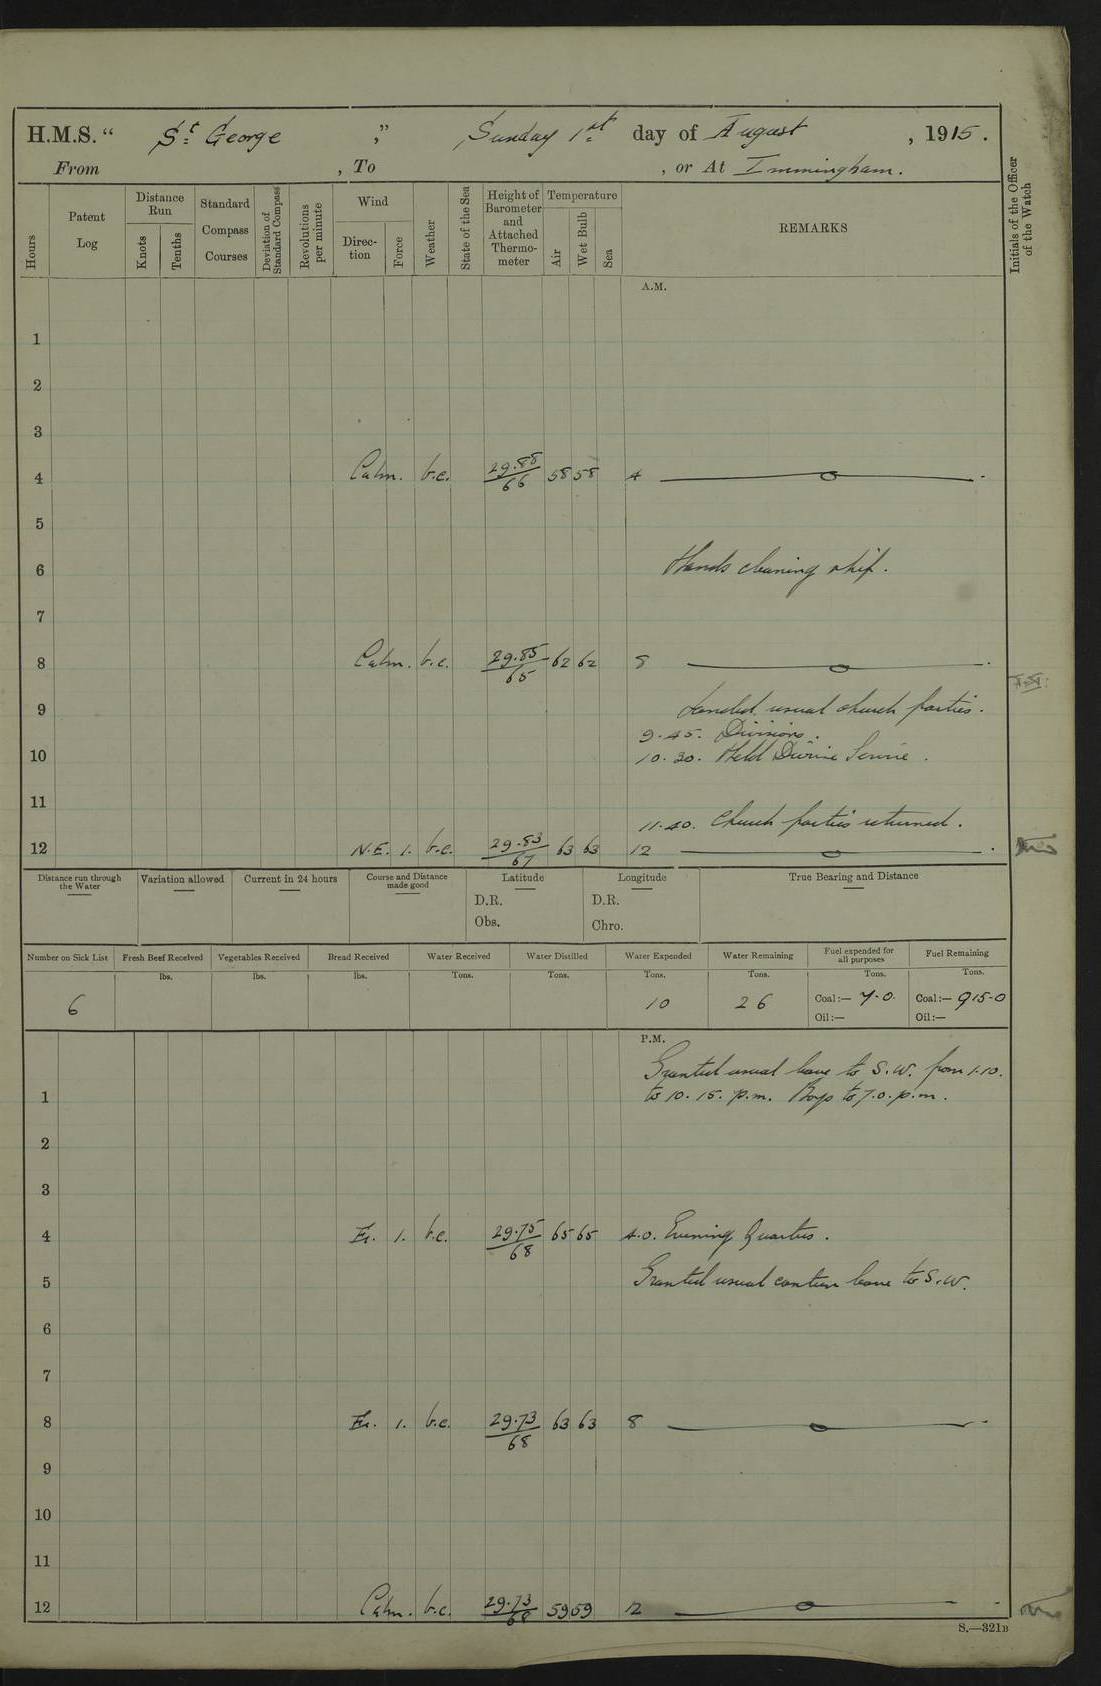 H.M.S. “ St George ,” Sunday 1st day of August , 1915 .
From , To , or At Immingham.
Hours
Patent Log
Distance Run
Knots
Tenths
Standard Compass Courses
Deviation of Standard Compass
Revolutions per minute
Wind
Direc-tion
Force
Weather
State of the Sea
Height of Barometer and Attached Thermo-meter
Temperature
Air
Wet Bulb
Sea
REMARKS
Initials of the Officer of the Watch
A.M.
1
2
3
4 Calm. b.c. 29.88/66 58 58 4
5
6 Hands cleaning ship.
7
8 Calm. b.c. 29.85/65 62 62 8
9 Landed usual church parties.
9.45. Divisions.
10 10.30. Held Divine Service.
11
11.40. Church parties returned.
12 N.E. 1. b.c. 29.83/67 63 63 12
Distance run through the Water
Variation allowed
Current in 24 hours
Course and Distance made good
Latitude
D.R.
Obs.
Longitude
D.R.
Chro.
True Bearing and Distance
Number on Sick List
Fresh Beef Received
lbs.
Vegetables Received
lbs.
Bread Received
lbs.
Water Received
Tons.
Water Distilled
Tons.
Water Expended
Tons.
Water Remaining
Tons.
Fuel expended for all purposes
Tons.
Fuel Remaining
Tons.
6 10 26 Coal:— 7.0. Coal:— 915.0
Oil:— Oil:—
P.M.
Granted usual leave to S.W. from 1.10.
1 to 10.15. p.m. Boys to 7.0.p.m.
2
3
4 1. b.c. 29.75/68 65 65 4.0. Evening Quarters.
5 Granted usual canteen leave to S.W.
6
7
8 1. b.c. 29.73/68 63 63 8
9
10
11
12 Calm. b.c. 29.73/68 59 59 12
S.—321B